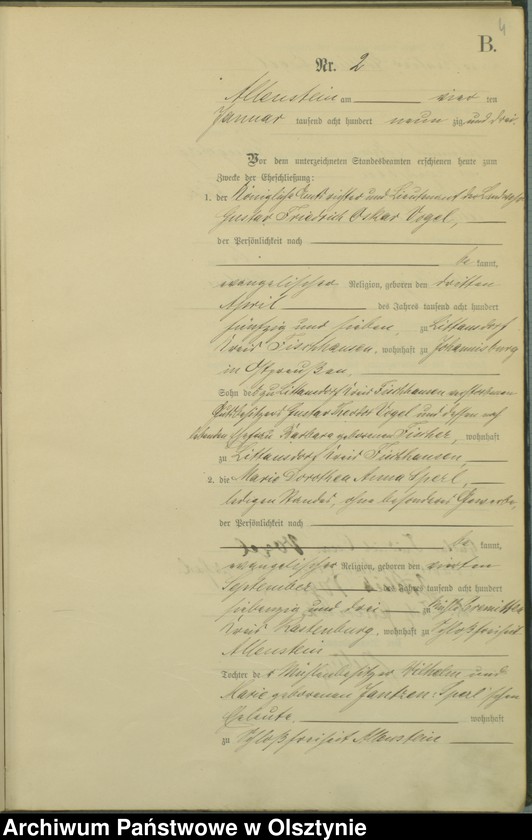 4
B.
Nr. 2
Allenstein am vier ten
Januar tausend acht hundert neun zig und drei.
Vor dem unterzeichneten Standesbeamten erschienen heute zum
Zwecke der Eheschließung:
1. der Königliche und Lieutenant der Landwehr
Gustav Friedrich Oskar Vogel,
der Persönlichkeit nach
be kannt,
evangelischer Religion, geboren den dritten
April des Jahres tausend acht hundert
fünfzig und sieben, zu Littausdorf
Kreis Fischhausen, wohnhaft zu Johannisburg
in Ostpreußen,
Sohn des zu Littausdorf Kreis Fischhausen verstorbenen
Gutsbesitzers Gustav Vogel und dessen noch
lebenden Ehefrau Barbara geborenen Fischer, wohnhaft
zu Littausdorf Kreis Fischhausen,
2. die Marie Dorothea Anna Sperl,
ledigen Standes, ohne besonderes Gewerbe,
der Persönlichkeit nach
be kannt,
evangelischer Religion, geboren den vierten
September des Jahres tausend acht hundert
siebenzig und drei zu
Kreis Rastenburg, wohnhaft zu Schloßfreiheit
Allenstein
Tochter der Mühlenbesitzer Wilhelm und
Marie geborenen Jantzen-Sperl'schen
Eheleute, wohnhaft
zu Schloßfreiheit Allenstein
Archiwum Państwowe w Olsztynie